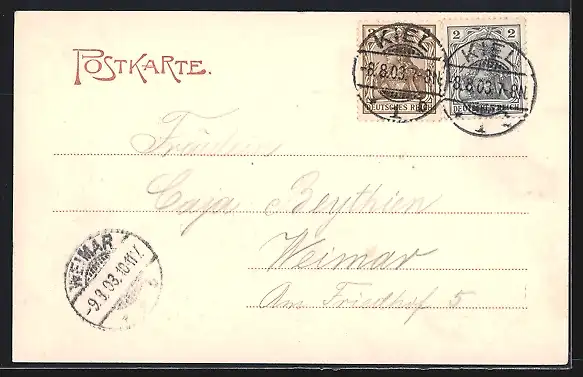 POSTKARTE.
3 2
DEUTSCHES REICH DEUTSCHES REICH
KIEL
8.8.03.7-8N.
1
KIEL
8.8.03.7-8N.
1
Fräulein
Caja Beythien
Weimar
Am Friedhof 5
WEIMAR
-9.8.03.10-11V.